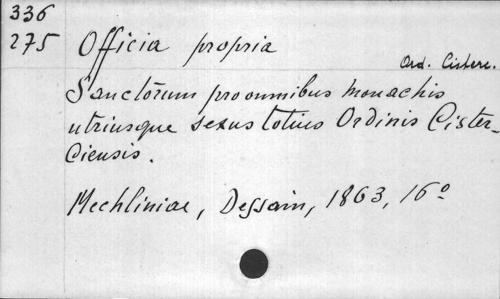 336
275
Officia propria
Ord. Cisterc.
Sanctōrum pro omnibus monachis
utriusque sexus totius Ordinis Cister-
ciensis.
Mechliniae, Dessain, 1863, 16º